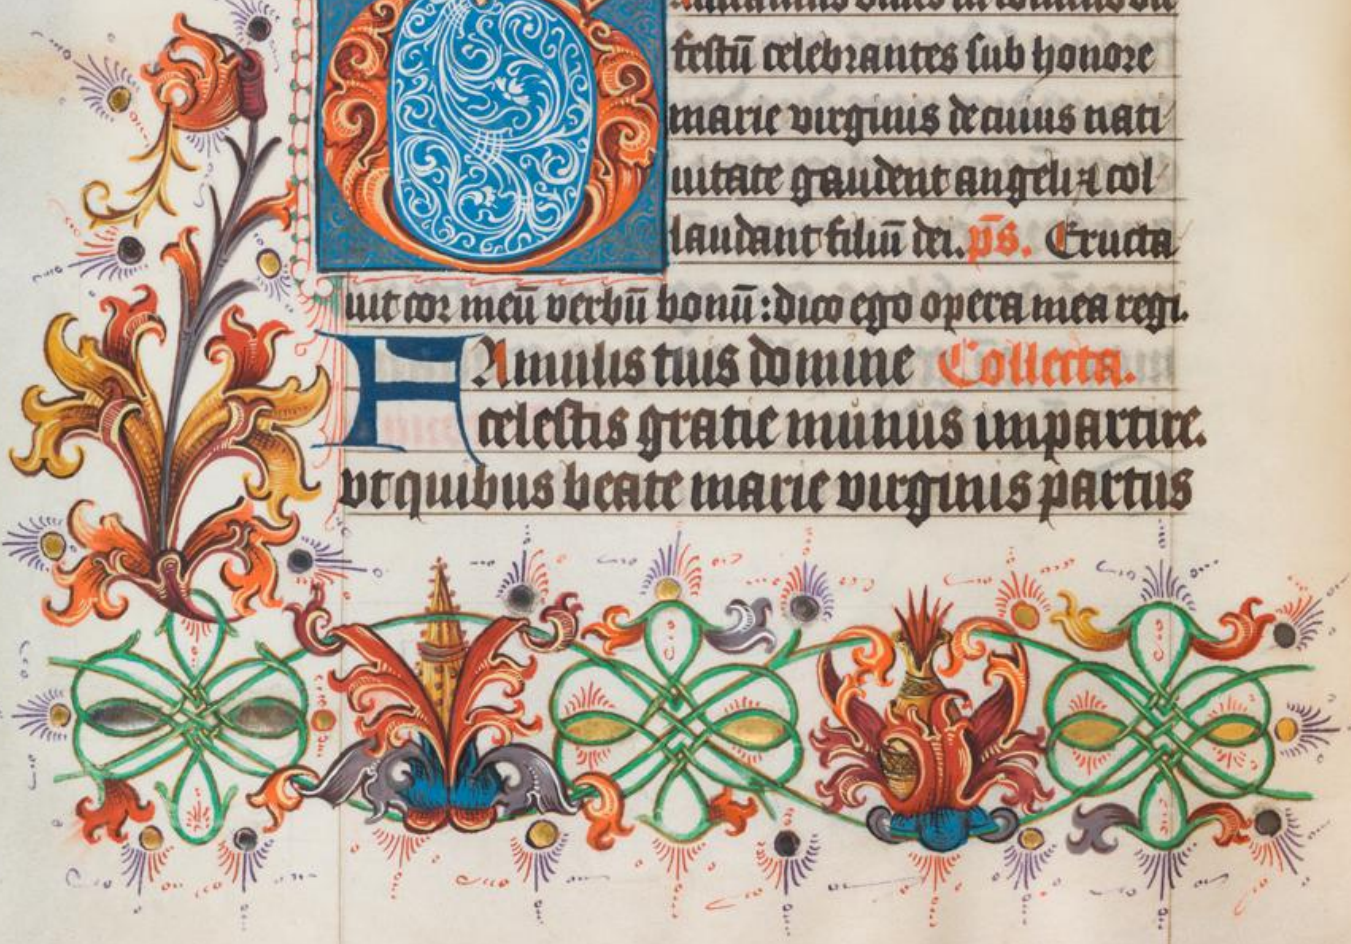 festū celebrantes sub honore
marie virginis de cuius nati
uitate gaudent angeli ⁊ col
laudant filiū dei. p̄s. Eructa
uit cor meū verbū bonū : dico ego opera mea regi.
FAmulis tuis domine Collecta.
celestis gratie munus impartire.
vt quibus beate marie virginis partus